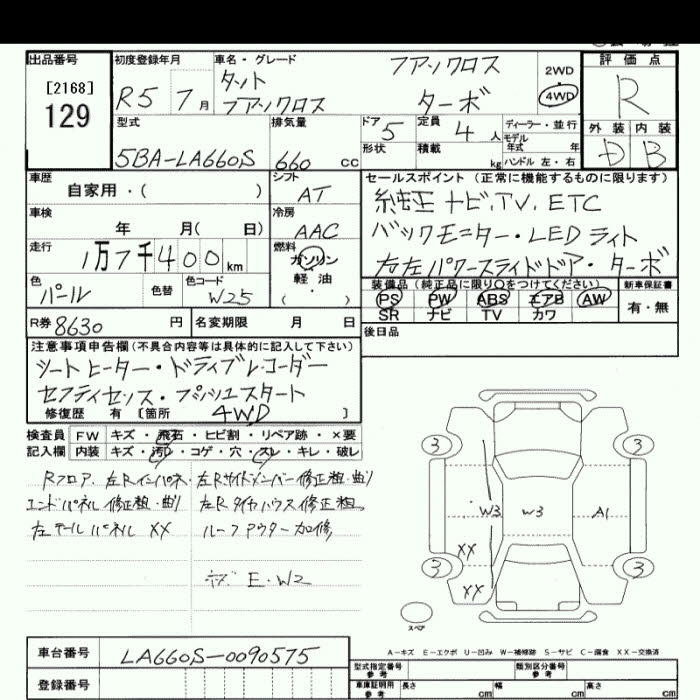 出品番号 初度登録年月 車名・グレード ファンクロス 2WD 評価点
[2168] R5 7月 タント 4WD R
129 ファンクロス ターボ
型式 排気量 ドア 5 定員 4人 ディーラー・並行 外装 内装
5BA-LA660S 660 cc 形状 積載 kg モデル年式 年 D B
ハンドル 左・右
車歴 シフト セールスポイント (正常に機能するものに限ります)
自家用・( ) AT 純正ナビ.TV.ETC
車検 冷房 バックモニター・LEDライト
年 月( 日) AAC 右左パワースライドドア・ターボ
走行 燃料
1万7千400km ガソリン
軽油
( )
色 色替 色コード 装備品(純正品に限り○をつけてください) 新車保証書
パール W25 PS PW ABS エアB AW 有・無
SR ナビ TV カワ
R券 8630円 名変期限 月 日 後日品
注意事項申告欄(不具合内容等は具体的に記入して下さい)
シートヒーター・ドライブレコーダー
セフティセンス・プッシュスタート
修復歴 有 [箇所 4WD ]
検査員 FW キズ・飛石・ヒビ割・リペア跡・×要
記入欄 内装 キズ・汚レ・コゲ・穴・スレ・キレ・破レ
Rフロア、左Rインパネ・左Rサイドメンバー修正粗・曲り
エンドパネル修正粗・曲り 左Rタイヤハウス修正粗
左テールパネルXX ルーフアウター加修
キズ E・W2
3 3
W3 W3 A1
XX
3 3
XX
スペア
A-キズ E-エクボ U-凹み W-補修跡 S-サビ C-腐食 XX-交換済
車台番号 LA660S-0090575
登録番号
型式指定番号 類別区分番号
参考
車庫証明用 長さ cm 幅 cm 高さ cm
参考